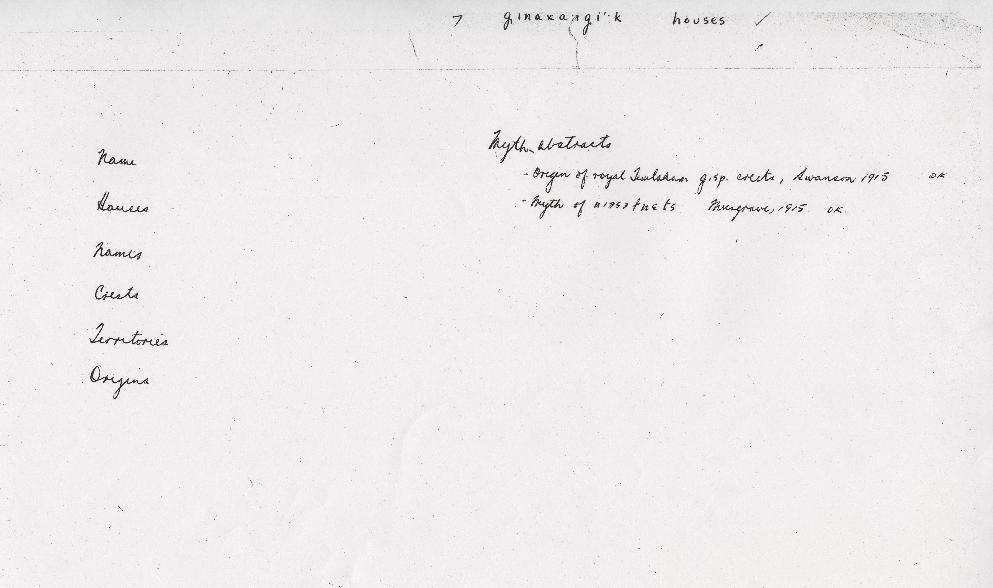 7 ginaxangi''k houses ✓
Name
Houses
Names
Crests
Territories
Origins
Myth abstracts
- Origin of royal gisp. crests, Swanson 1915 OK
- Myth of Musgrave, 1915 OK